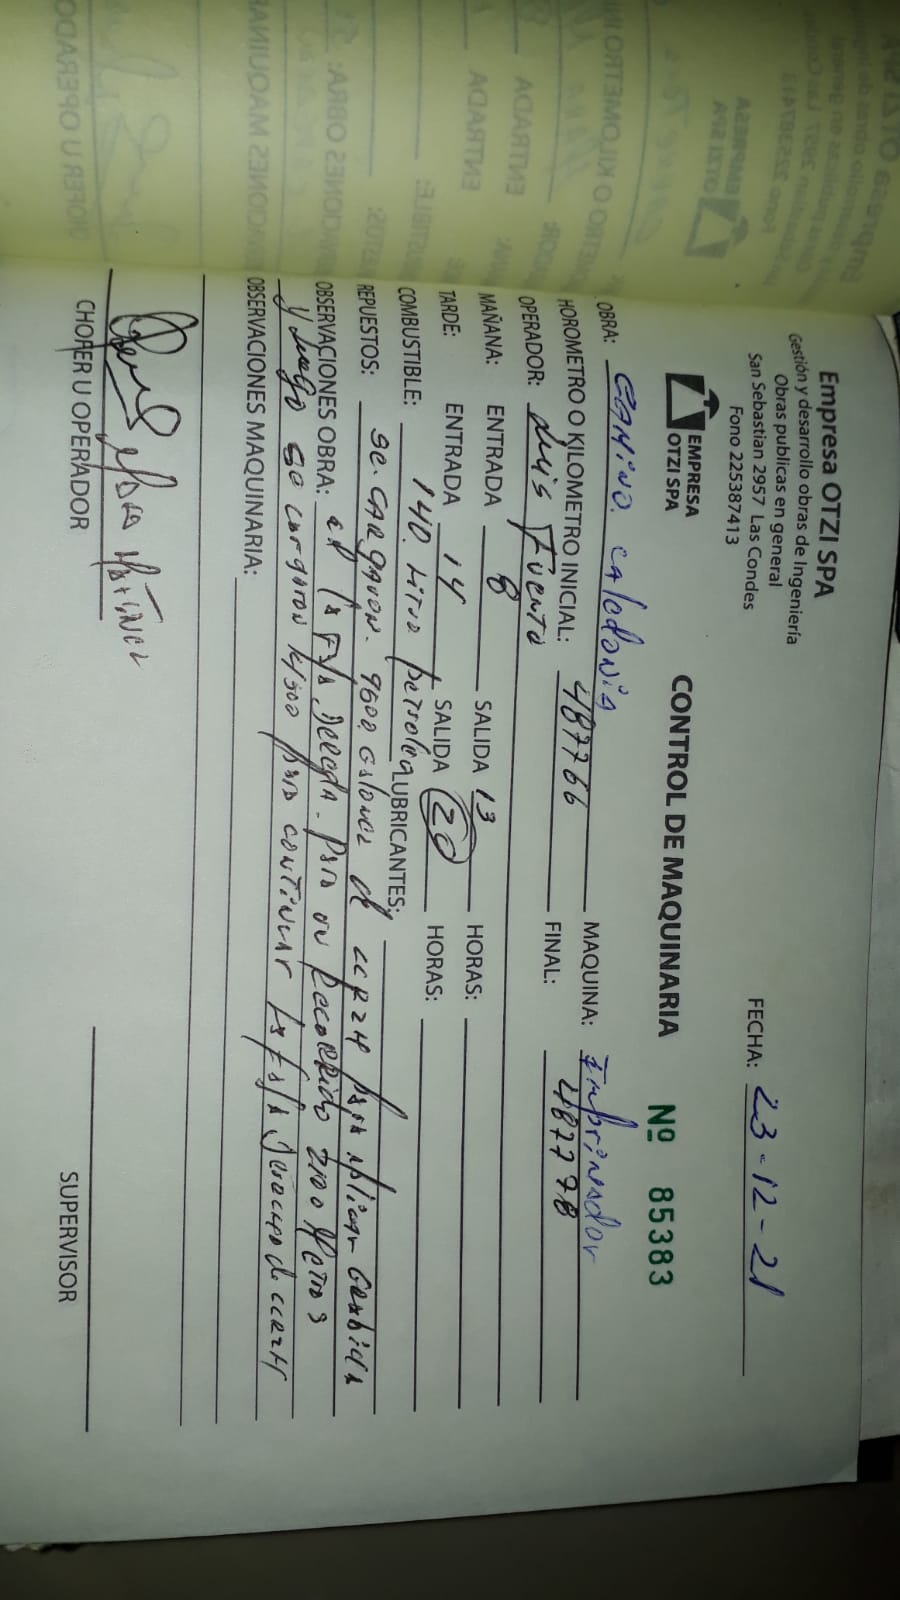 Empresa OTZI SPA
Gestión y desarrollo obras de Ingeniería
Obras publicas en general
San Sebastian 2957 Las Condes
Fono 225387413
EMPRESA
OTZI SPA
FECHA: 23-12-21
CONTROL DE MAQUINARIA Nº 85383
OBRA: CAMINO. Caledonia MAQUINA: Imprimador
HOROMETRO O KILOMETRO INICIAL: 487766 FINAL: 487778
OPERADOR: Luis Fuente
MAÑANA: ENTRADA 8 SALIDA 13 HORAS:
TARDE: ENTRADA 14 SALIDA 20 HORAS:
COMBUSTIBLE: 140. Litro petroleo LUBRICANTES:
REPUESTOS: se. CARgaron. 9500 Galones de para aplicar
OBSERVACIONES OBRA: la Faja Para su Recorrido 2100 Metros
y Luego se cargaron para continuar la Faja
OBSERVACIONES MAQUINARIA:
CHOFER U OPERADOR
SUPERVISOR